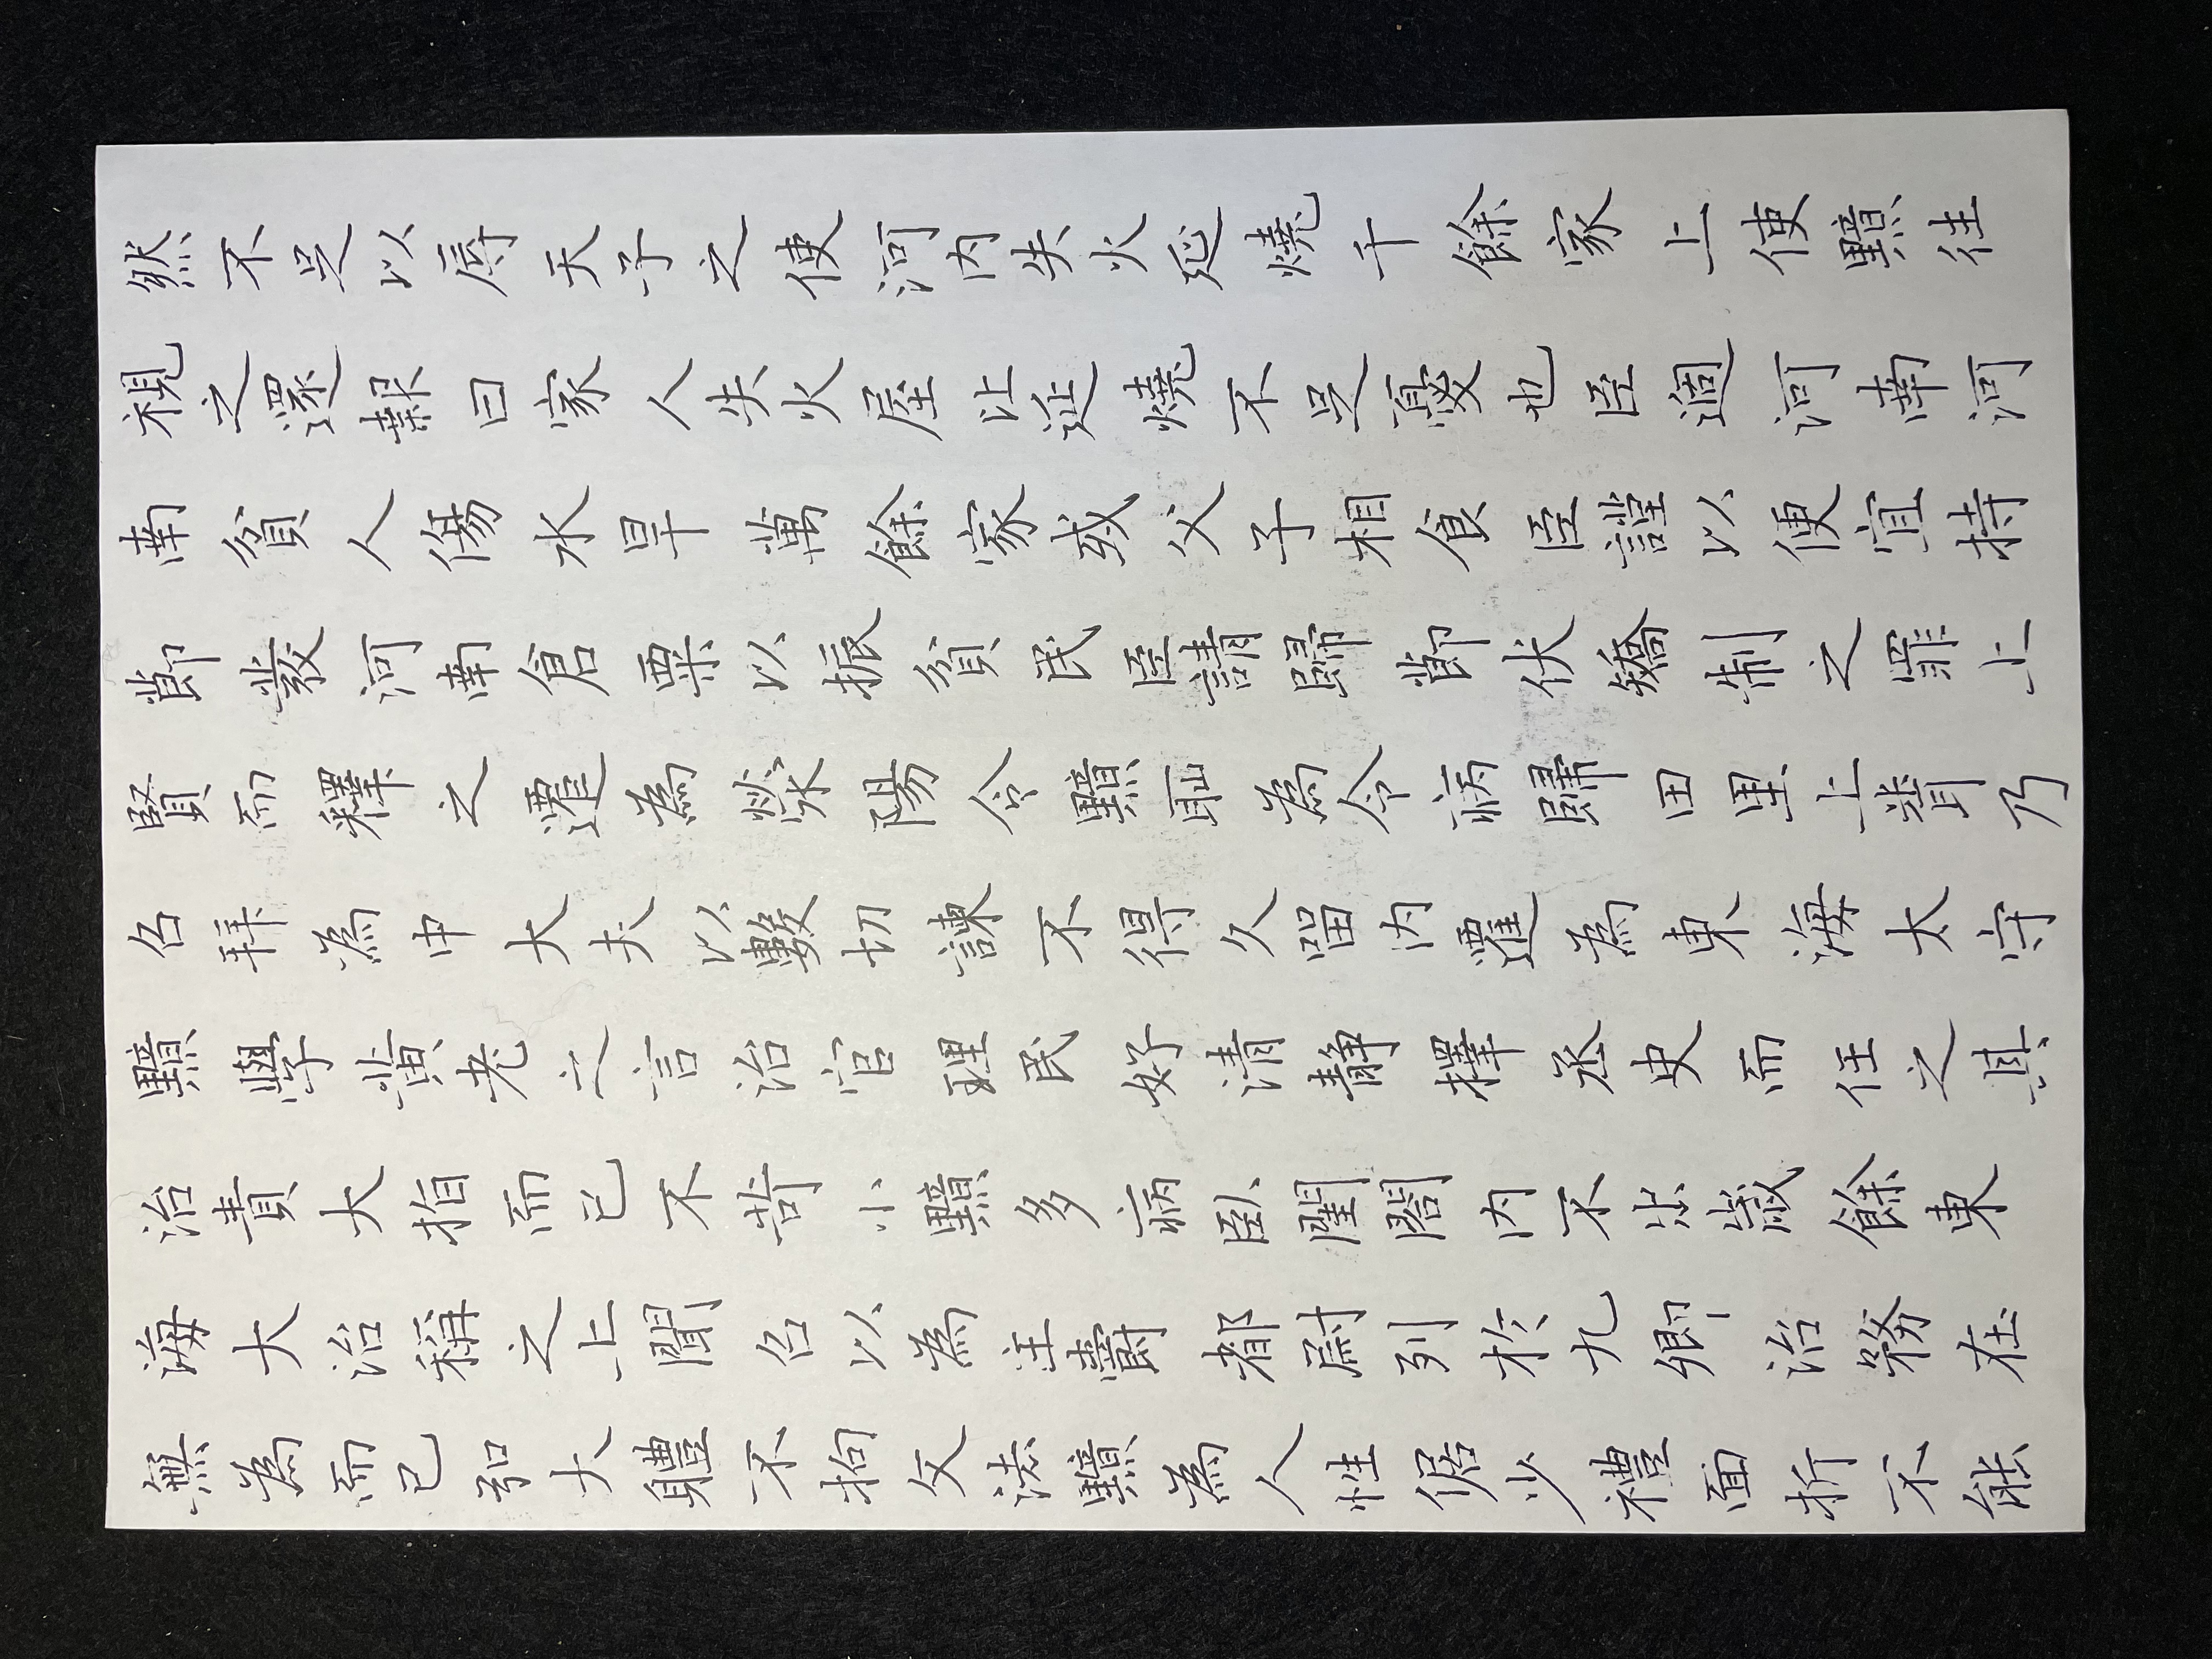 然不足以辱天子之使河内失火延燒千餘家上使黯往
視之還報曰家人失火屋比延燒不足憂也臣過河南河
南貧人傷水旱萬餘家或父子相食臣謹以便宜持
節發河南倉粟以振貧民臣請歸節伏矯制之罪上
賢而釋之遷為滎陽令黯恥為令病歸田里上聞乃
召拜為中大夫以數切諫不得久留内遷為東海太守
黯學黃老之言治官理民好清静擇丞史而任之其
治責大指而已不苛小黯多病臥閨閤内不出歲餘東
海大治稱之上聞召以為主爵都尉列於九卿治務在
無為而已弘大體不拘文法黯為人性倨少禮面折不能